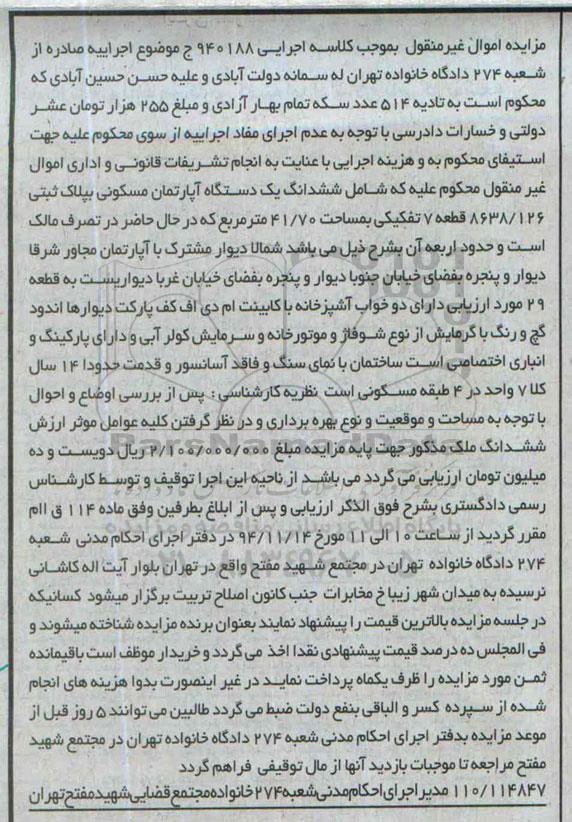 مزایده اموال غیرمنقول بموجب کلاسه اجرایی ۹۴۰۱۸۸ ج موضوع اجراییه صادره از
شعبه ۲۷۴ دادگاه خانواده تهران له سمانه دولت آبادی و علیه حسن حسین آبادی که
محکوم است به تادیه ۵۱۴ عدد سکه تمام بهار آزادی و مبلغ ۲۵۵ هزار تومان عشر
دولتی و خسارات دادرسی با توجه به عدم اجرای مفاد اجراییه از سوی محکوم علیه جهت
استیفای محکوم به و هزینه اجرایی با عنایت به انجام تشریفات قانونی و اداری اموال
غیر منقول محکوم علیه که شامل ششدانگ یک دستگاه آپارتمان مسکونی بپلاک ثبتی
۸۶۳۸/۱۲۶ قطعه ۷ تفکیکی بمساحت ۴۱/۷۰ مترمربع که در حال حاضر در تصرف مالک
است و حدود اربعه آن بشرح ذیل می باشد شمالا دیوار مشترک با آپارتمان مجاور شرقا
دیوار و پنجره بفضای خیابان جنوبا دیوار و پنجره بفضای خیابان غربا دیواریست به قطعه
۲۹ مورد ارزیابی دارای دو خواب آشپزخانه با کابینت ام دی اف کف پارکت دیوارها اندود
گچ و رنگ با گرمایش از نوع شوفاژ و موتورخانه و سرمایش کولر آبی و دارای پارکینگ و
انباری اختصاصی است ساختمان با نمای سنگ و فاقد آسانسور و قدمت حدودا ۱۴ سال
کلا ۷ واحد در ۴ طبقه مسکونی است نظریه کارشناسی : پس از بررسی اوضاع و احوال
با توجه به مساحت و موقعیت و نوع بهره برداری و در نظر گرفتن کلیه عوامل موثر ارزش
ششدانگ ملک مذکور جهت پایه مزایده مبلغ ۲/۱۰۰/۰۰۰/۰۰۰ ریال دویست و ده
میلیون تومان ارزیابی می گردد می باشد از ناحیه این اجرا توقیف و توسط کارشناس
رسمی دادگستری بشرح فوق الذکر ارزیابی و پس از ابلاغ بطرفین وفق ماده ۱۱۴ ق اام
مقرر گردید از ساعت ۱۰ الی ۱۱ مورخ ۹۴/۱۱/۱۴ در دفتر اجرای احکام مدنی شعبه
۲۷۴ دادگاه خانواده تهران در مجتمع شهید مفتح واقع در تهران بلوار آیت اله کاشانی
نرسیده به میدان شهر زیبا خ مخابرات جنب کانون اصلاح تربیت برگزار میشود کسانیکه
در جلسه مزایده بالاترین قیمت را پیشنهاد نمایند بعنوان برنده مزایده شناخته میشوند و
فی المجلس ده درصد قیمت پیشنهادی نقدا اخذ می گردد و خریدار موظف است باقیمانده
ثمن مورد مزایده را ظرف یکماه پرداخت نماید در غیر اینصورت بدوا هزینه های انجام
شده از سپرده کسر و الباقی بنفع دولت ضبط می گردد طالبین می توانند ۵ روز قبل از
موعد مزایده بدفتر اجرای احکام مدنی شعبه ۲۷۴ دادگاه خانواده تهران در مجتمع شهید
مفتح مراجعه تا موجبات بازدید آنها از مال توقیفی فراهم گردد
۱۱۰/۱۱۴۸۴۷ مدیر اجرای احکام مدنی شعبه ۲۷۴ خانواده مجتمع قضایی شهید مفتح تهران
ParsNamadData